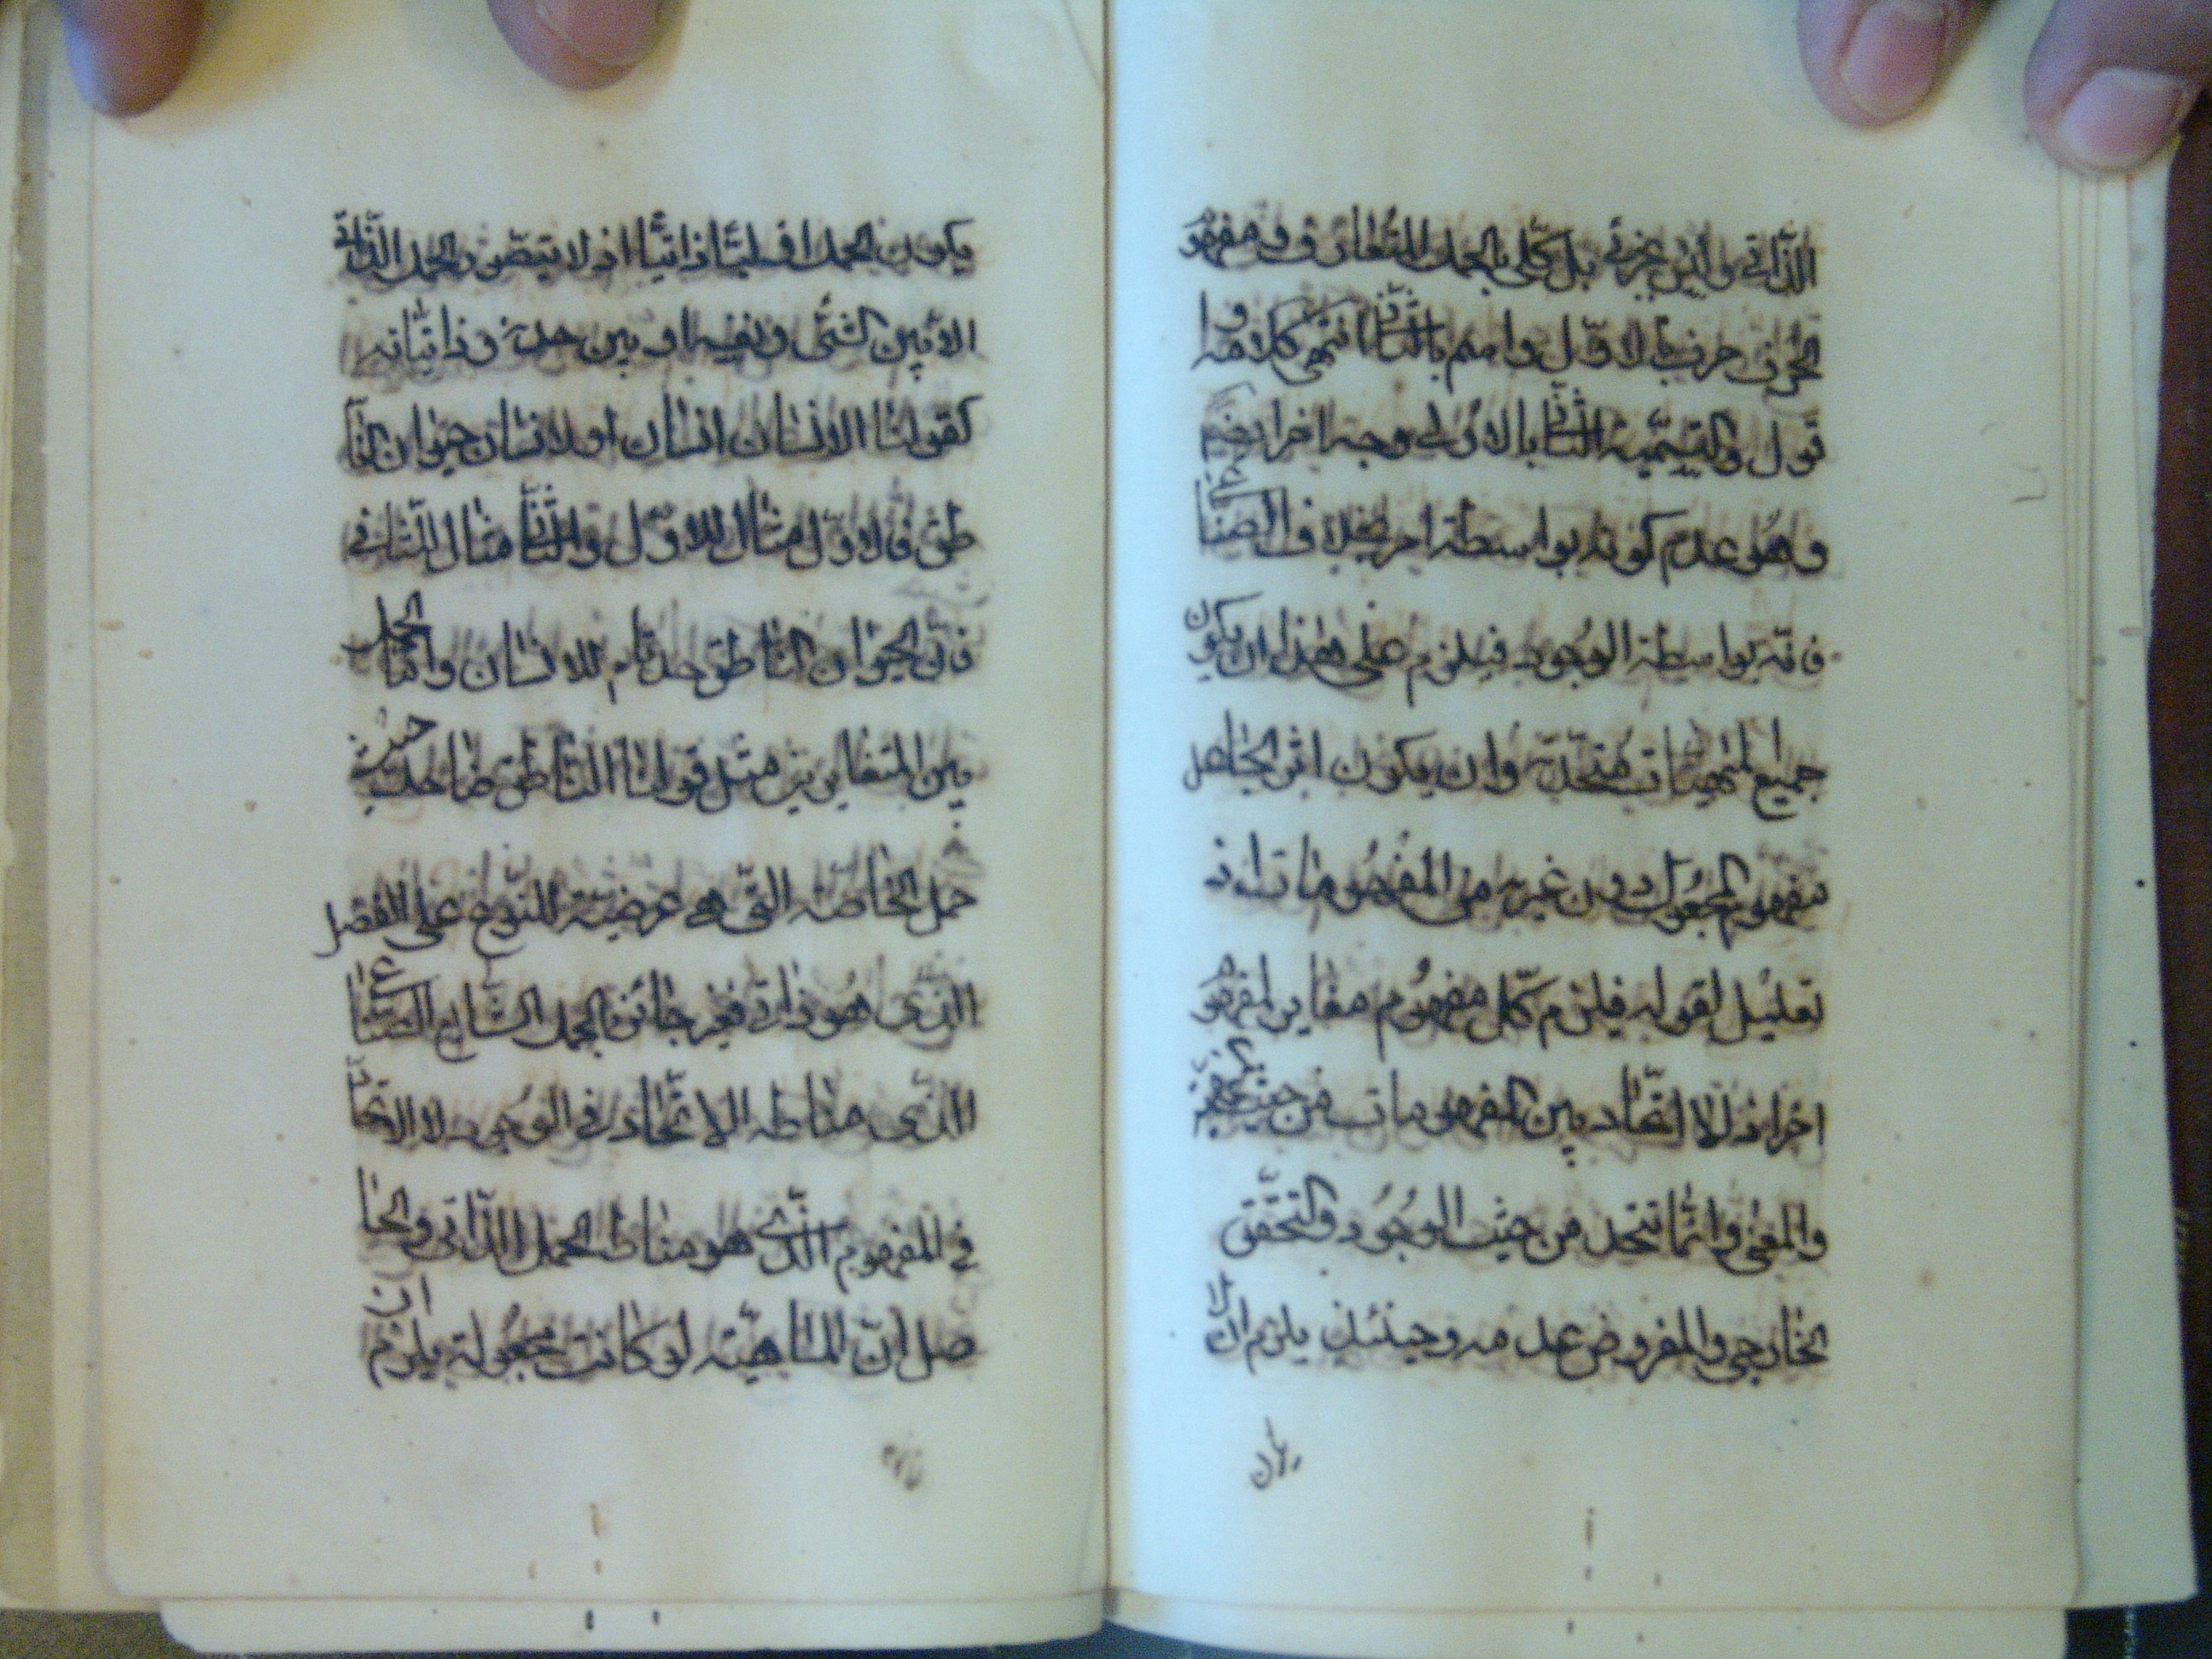 الذاتي وليس جزئي بل كلي بالحمل المتعارف ومفهوم
الحرف حرف بالاول واسم بالثاني انتهى كلامه وا
قول والتسمية الثاني بالاولى وجه اخر ايضا
وهو عدم كونه بواسطة امر بخلاف الصناعي
فانه بواسطة الوجود فيلزم على هذا ان يكون
جميع المهيات متحدة وان يكون اثر الجاعل
مفهوم المجعول دون غيره من المفهومات اذ
تعليل لقوله فيلزم كل مفهوم مغاير لمفهوم
اخر اذ لا اتحاد بين المفهومات من حيث
والمعنى وانما تتحد من حيث الوجود والتحقق
الخارجي والمفروض عدمه وحينئذ يلزم ان لا
يكون الحمل اوليا ذاتيا اذ لا يتصور الحمل الذاتي
الا بين الشئ ونفسه او بين حده وذاتياته
كقولنا الانسان انسان او الانسان حيوان النا
طق فالاول مثال للاول والثاني مثال للثاني
فان الحيوان الناطق حد تام للانسان واما الحمل
بين المتغايرين مثل قولنا الناطق ضاحك حيث
حمل الخاصة التي هي عرضية للنوع على الفصل
الذي هو ذاتي فغير جائز بالحمل الشايع الصناعي
الذي مناطه الاتحاد في الوجود لا الاتحاد
في المفهوم الذي هو مناط الحمل الذاتي والحا
صل ان الماهية لو كانت مجعولة يلزم ان